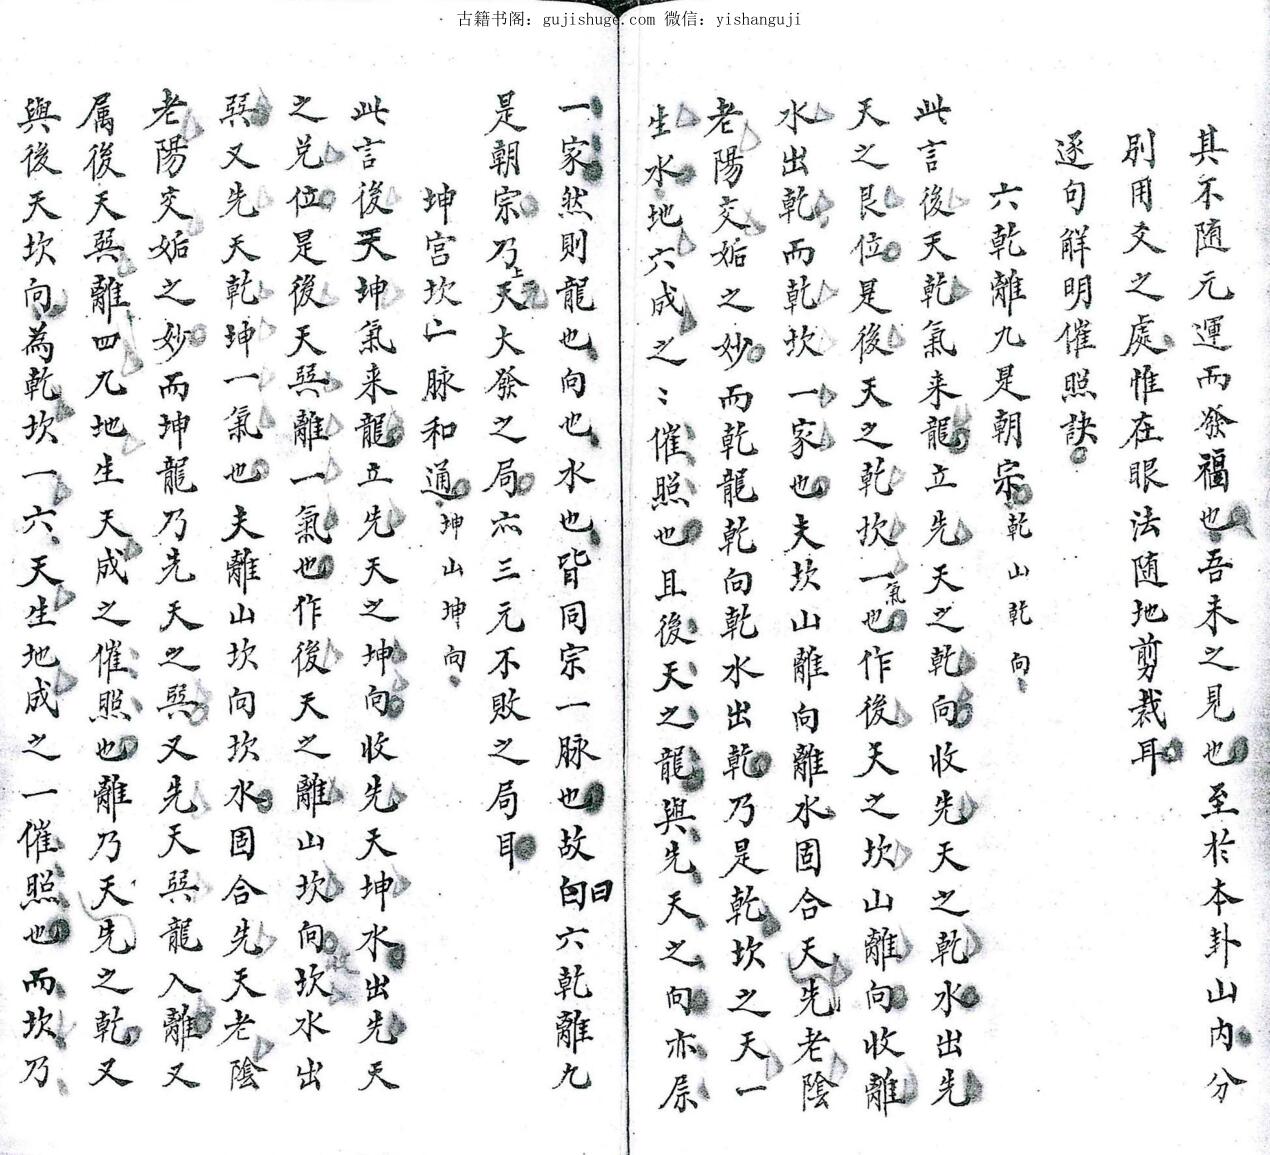 古籍书阁：gujishuge.com 微信：yishanguji
其不随元運而發福也吾未之見也至於本卦山内分
別用爻之處惟在眼法随地剪裁耳
逐句解明催照訣
六乾離九是朝宗乾山乾向
此言後天乾氣来龍立先天之乾向收先天之乾水出先
天之艮位是後天之乾坎一氣也作後天之坎山離向收離
水出乾而乾坎一家也夫坎山離向離水固合天先老陰
老陽交姤之妙而乾龍乾向乾水出乾乃是乾坎之天一
生水地六成之〻催照也且後天之龍與先天之向亦属
一家然則龍也向也水也皆同宗一脉也故曰六乾離九
是朝宗乃上元天大發之局亦三元不敗之局耳
坤宫坎二脉和通坤山坤向
此言後天坤氣来龍立先天之坤向收先天坤水出先天
之兑位是後天巽離一氣也作後天之離山坎向坎水出
巽又先天乾坤一氣也夫離山坎向坎水固合先天老陰
老陽交姤之妙而坤龍乃先天之巽又先天巽龍入離又
属後天巽離四九地生天成之催照也離乃天先之乾又
與後天坎向為乾坎一六天生地成之一催照也而坎乃